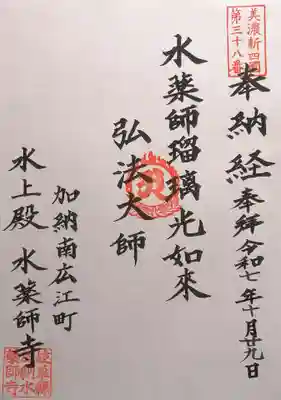 美濃新四国
第三十八番
奉納経 奉拝 令和七年十月廿九日
水薬師瑠璃光如来
弘法大師
加納南広江町
水上殿 水薬師寺